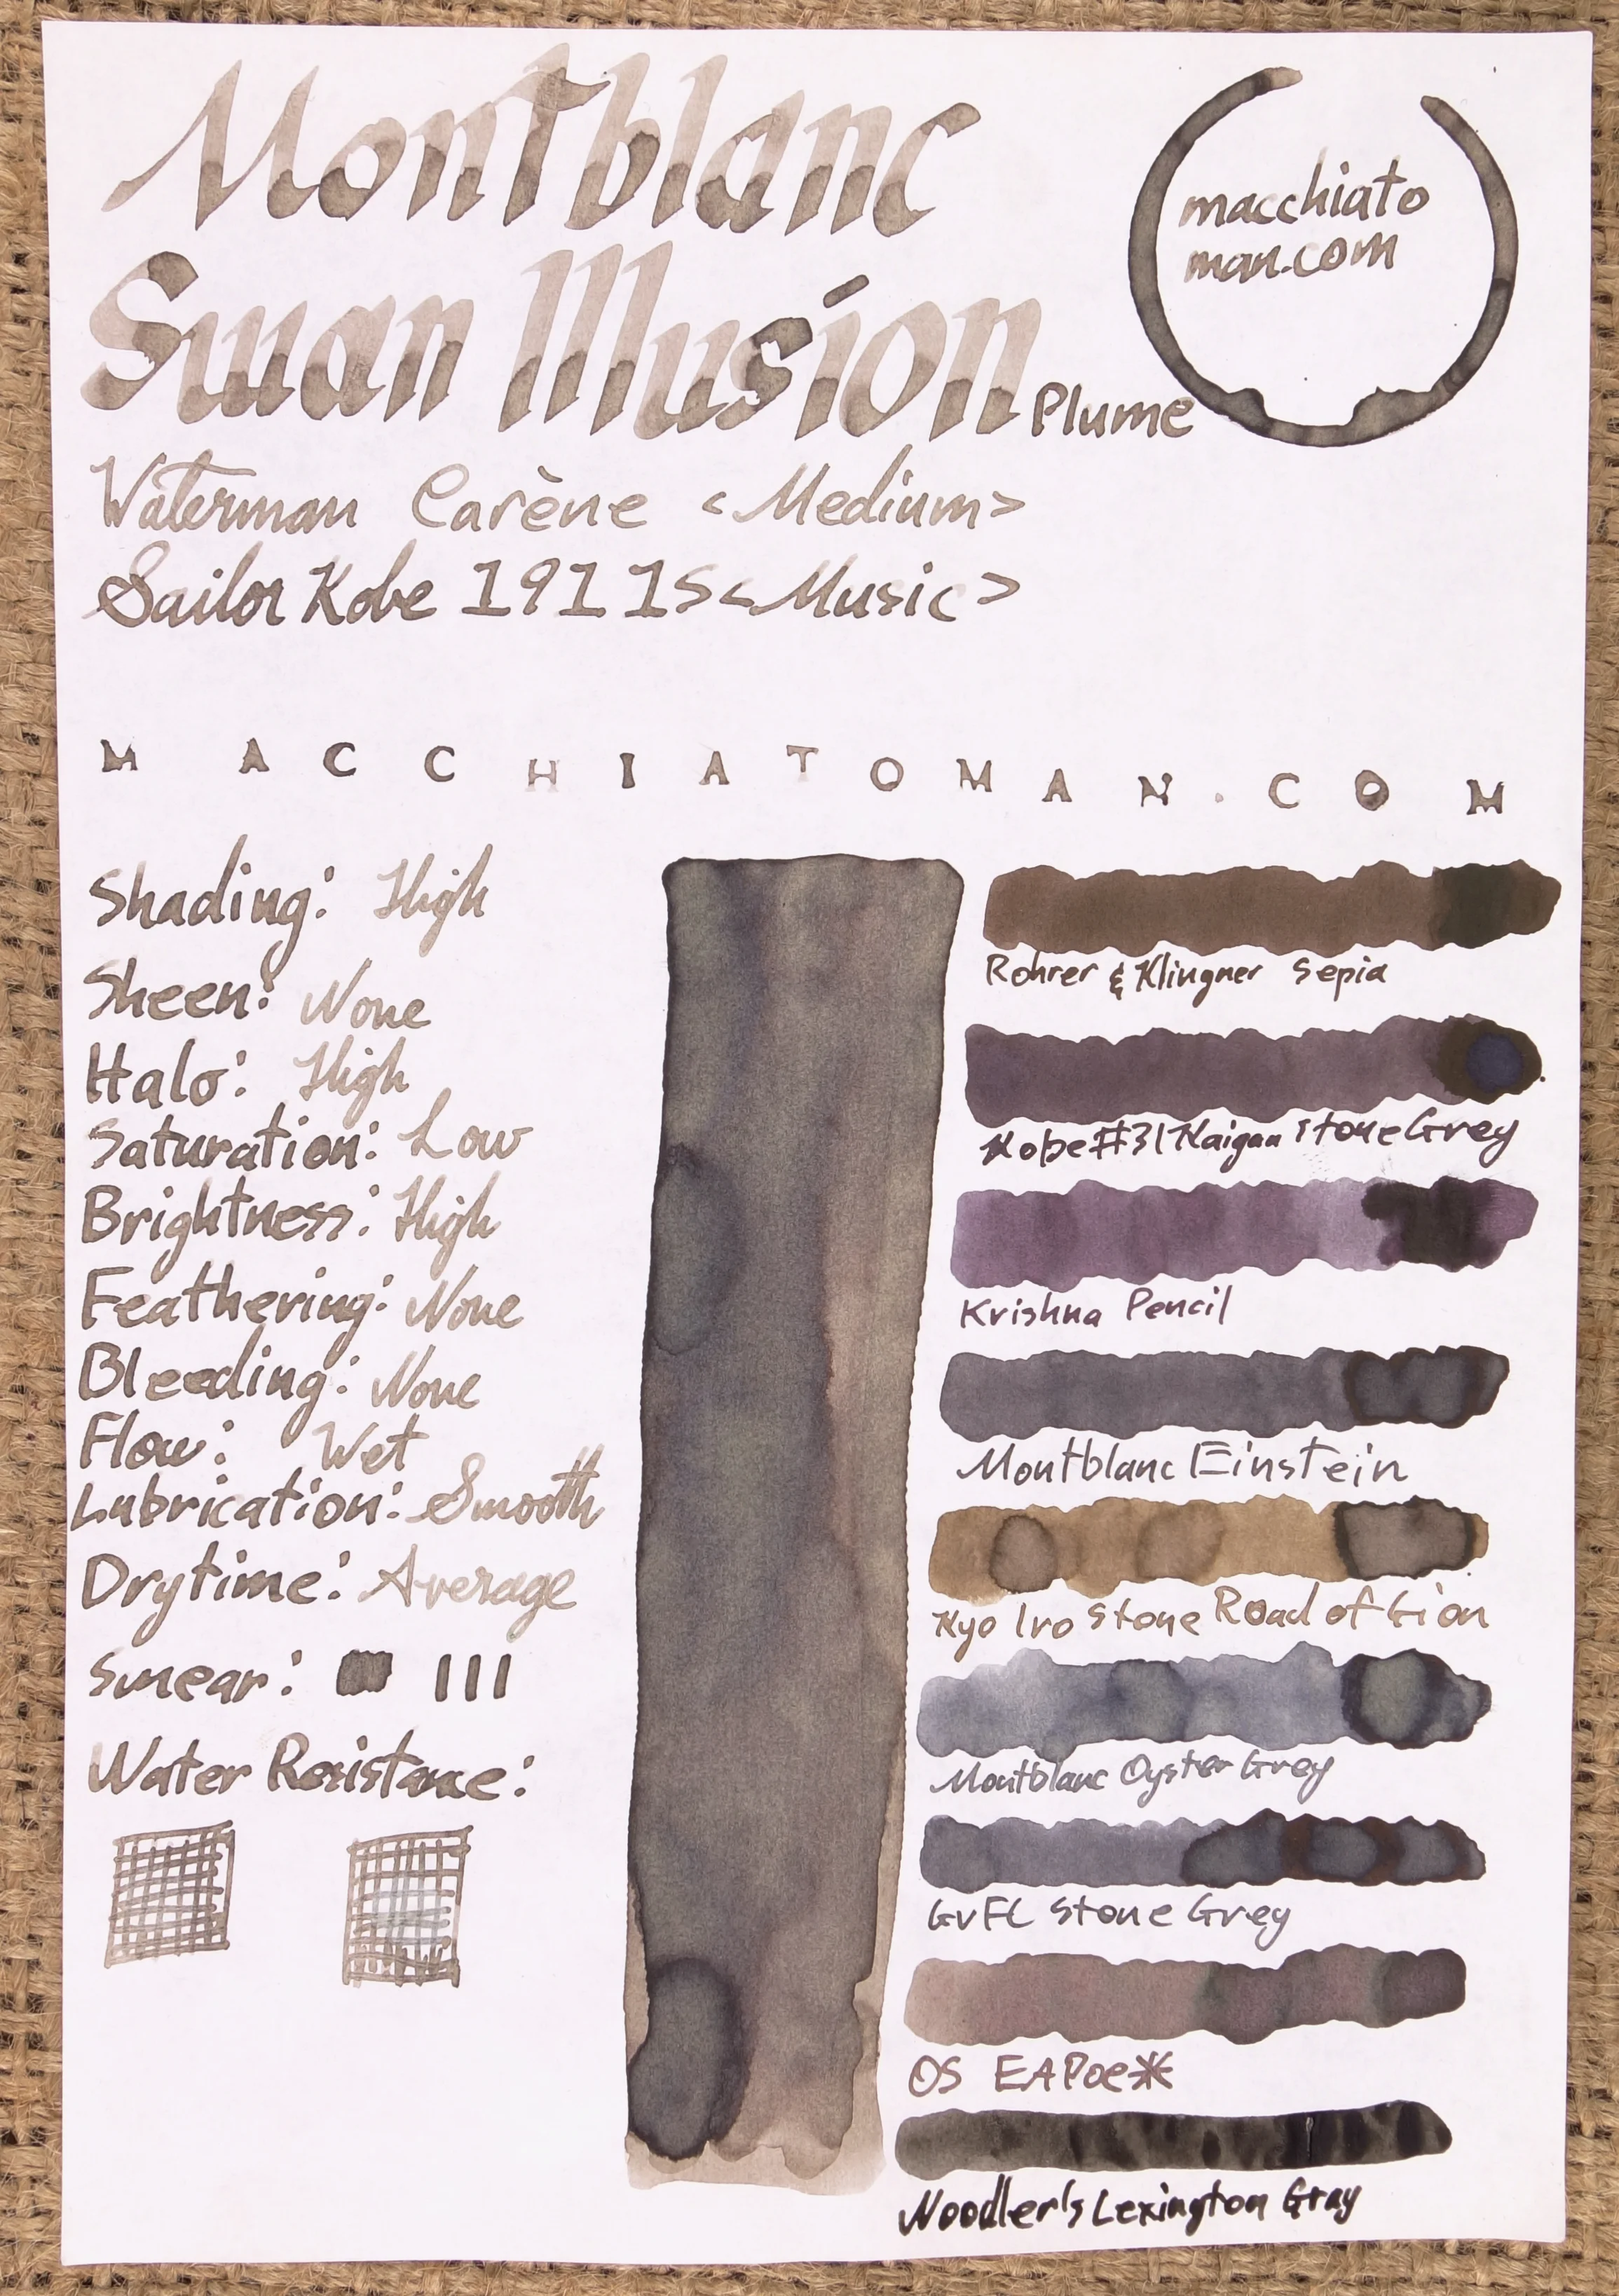 Montblanc
Swan Illusion Plume
macchiato
man.com
Waterman Carène <Medium>
Sailor Kobe 1911S <Music>
MACCHIATOMAN.COM
Shading: High
Sheen: None
Halo: High
Saturation: Low
Brightness: High
Feathering: None
Bleeding: None
Flow: Wet
Lubrication: Smooth
Drytime: Average
Smear:
Water Resistance:
Rohrer & Klingner Sepia
Kobe #31 Kaigan Stone Grey
Krishna Pencil
Montblanc Einstein
Kyo Iro Stone Road of Gion
Montblanc Oyster Grey
GvFC Stone Grey
OS EAPoe*
Noodler's Lexington Gray